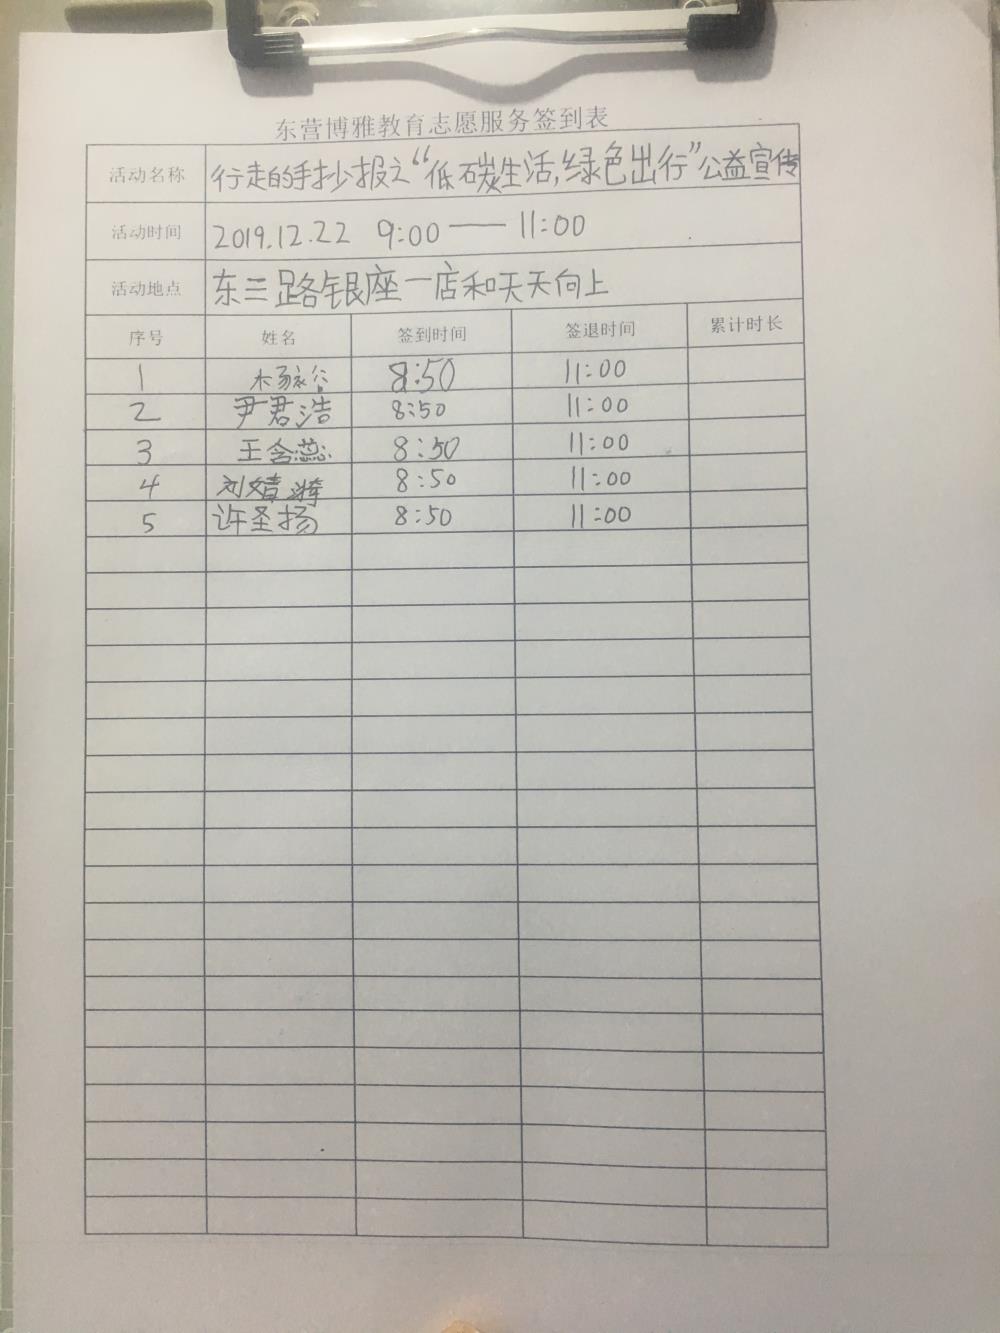 东营博雅教育志愿服务签到表
活动名称 行走的手抄报之“低碳生活,绿色出行”公益宣传
活动时间 2019.12.22 9:00——11:00
活动地点 东三路银座一店和天天向上
序号 姓名 签到时间 签退时间 累计时长
1 8:50 11:00
2 尹君浩 8:50 11:00
3 王含蕊 8:50 11:00
4 刘文清 8:50 11:00
5 许圣扬 8:50 11:00